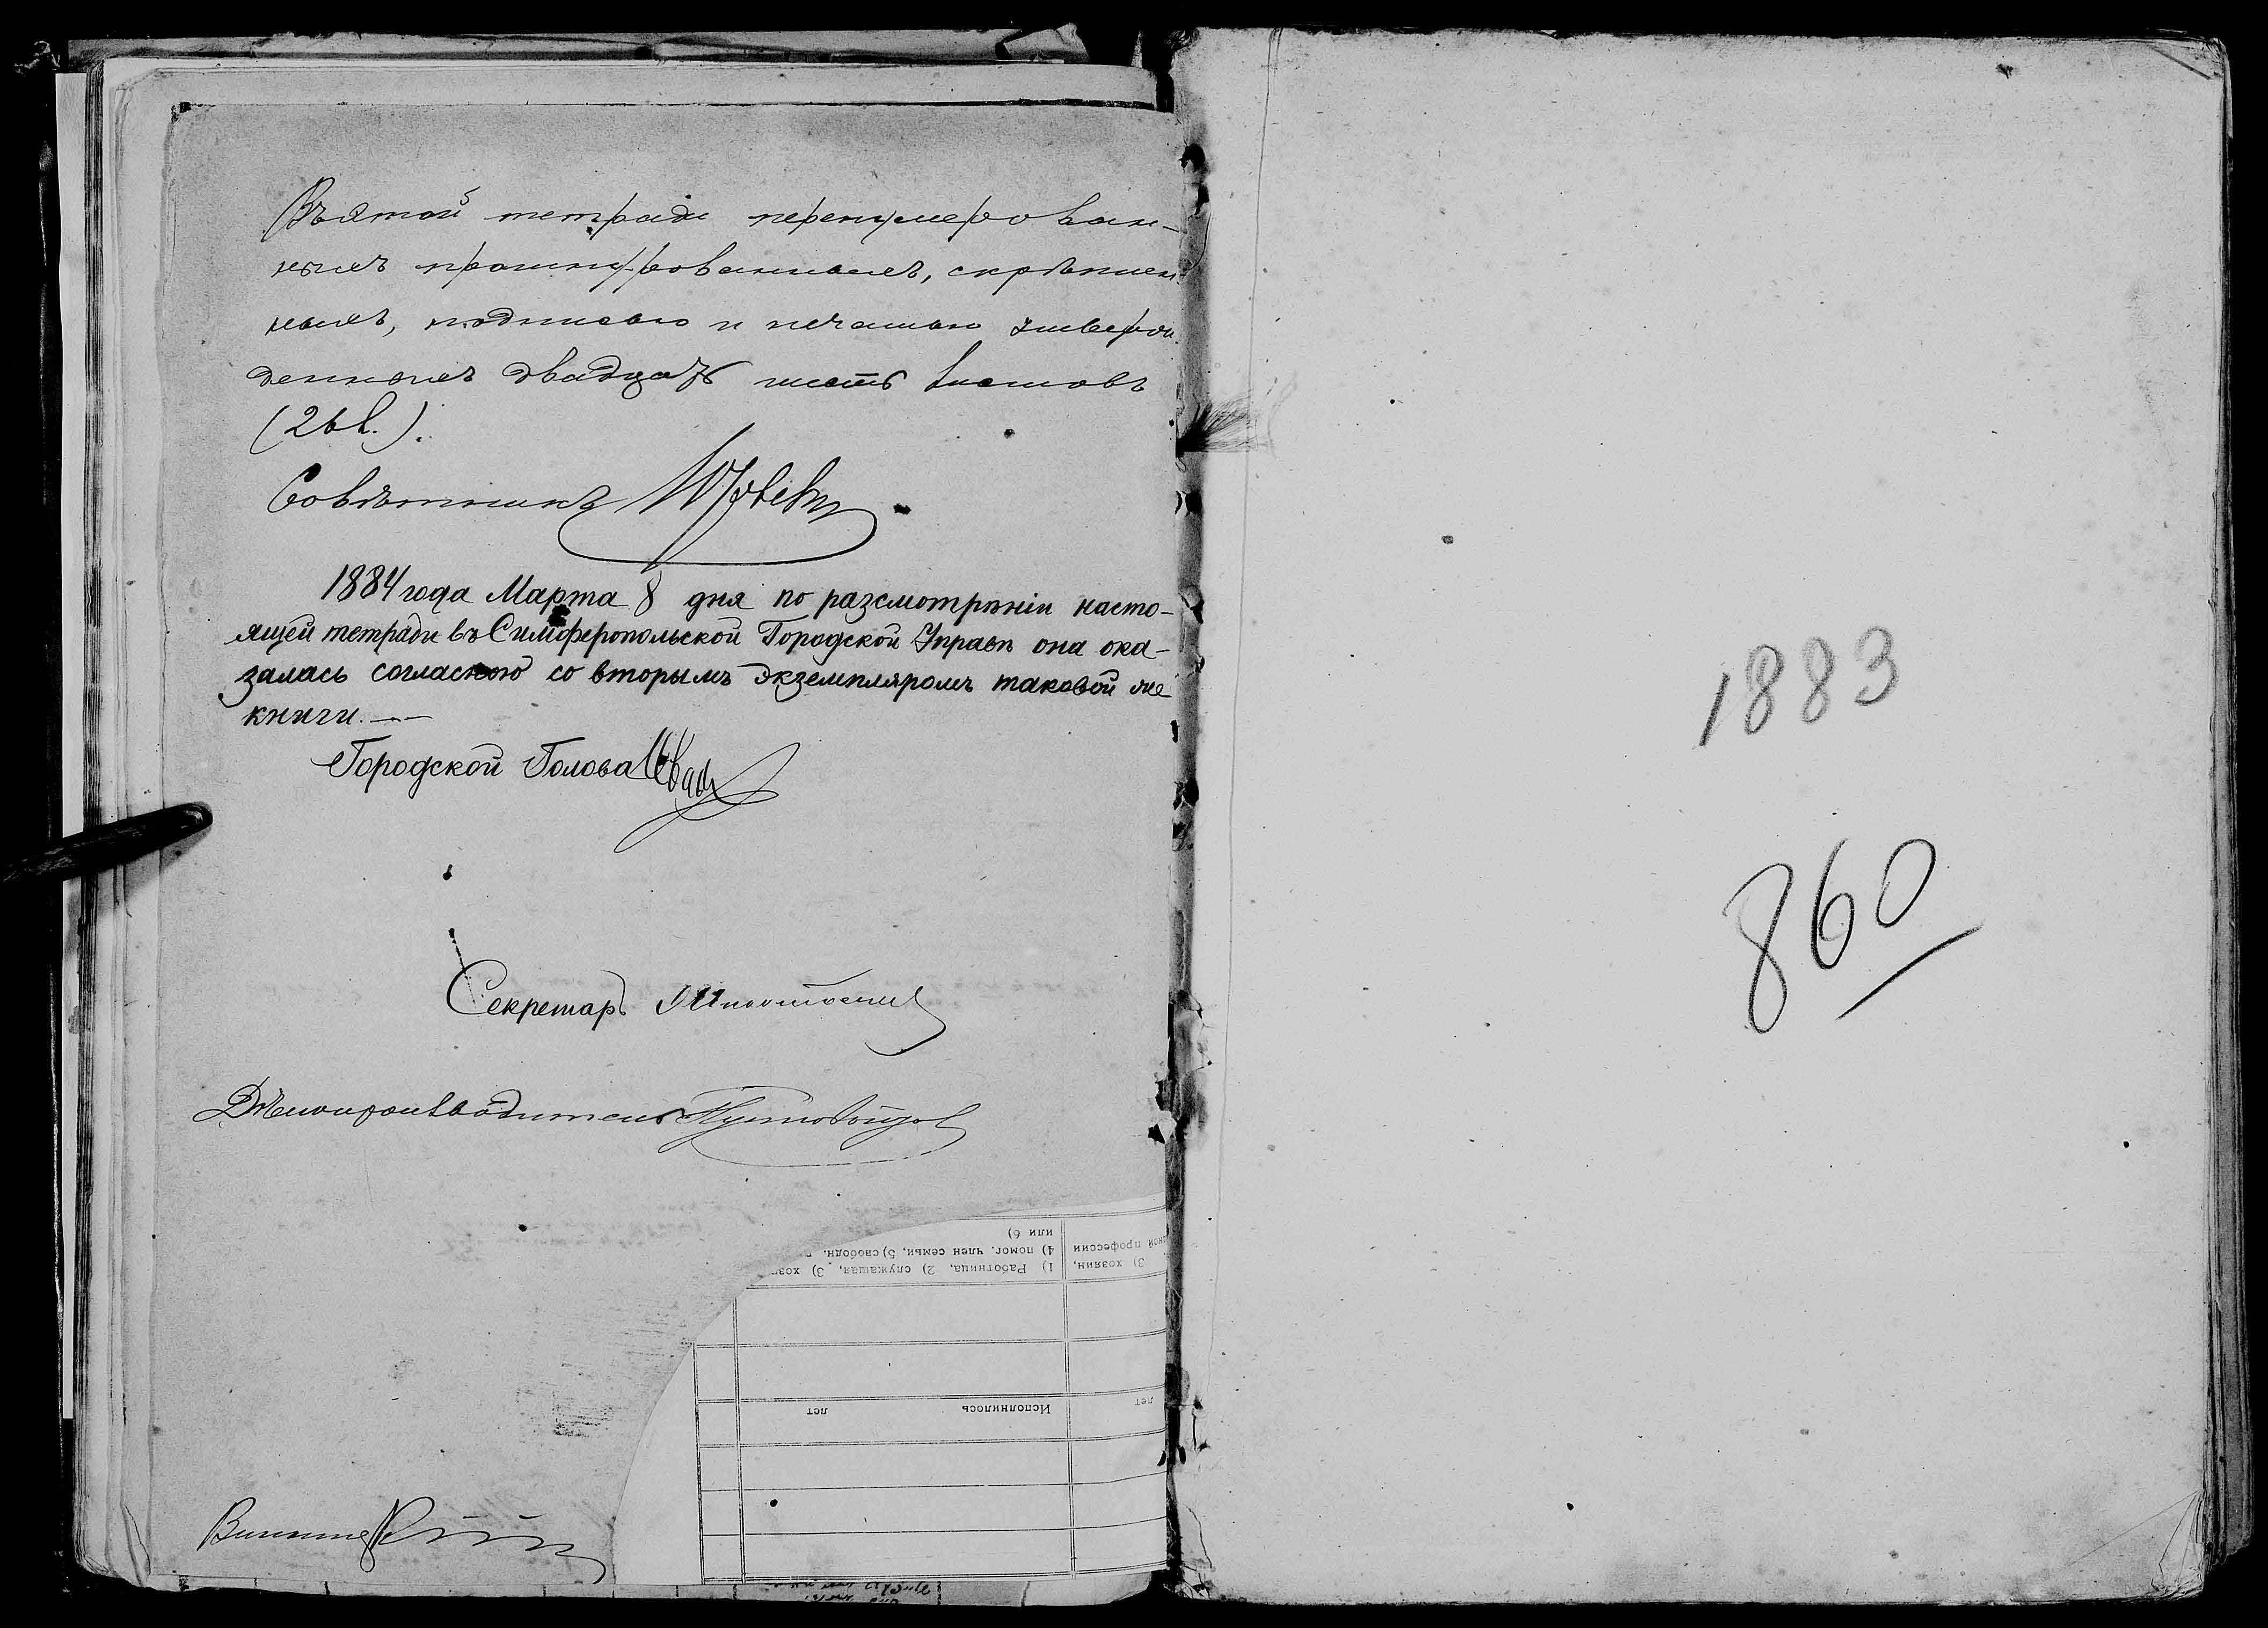 Въ этой тетради перенумерован-
ныхъ прошнурованныхъ, скрѣплен-
ныхъ, подписью и печатью утверж-
денныхъ двадцать шесть листовъ
(26 л.).
Совѣтникъ
1884 года Марта 8 дня по разсмотрѣніи насто-
ящей тетради въ Симферопольской Городской Управѣ она ока-
залась согласною со вторымъ экземпляромъ таковой же
книги. —
Городской Голова
Секретарь
Дѣлопроизводитель
или 6)
4) помог. член семьи, 5) свободн.
1) Работница, 2) служащая, 3) хозя
профессии
3) хозяин,
Исполнилось лет
лет
1883
860